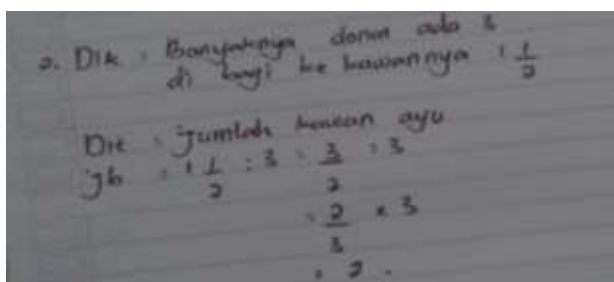 2. Dik : Banyaknya donat ada 3
di bagi ke kawannya 1 1/2
Dit : jumlah kawan ayu
jb : 1 1/2 : 3 = 3/2 : 3
= 2/3 × 3
= 2.